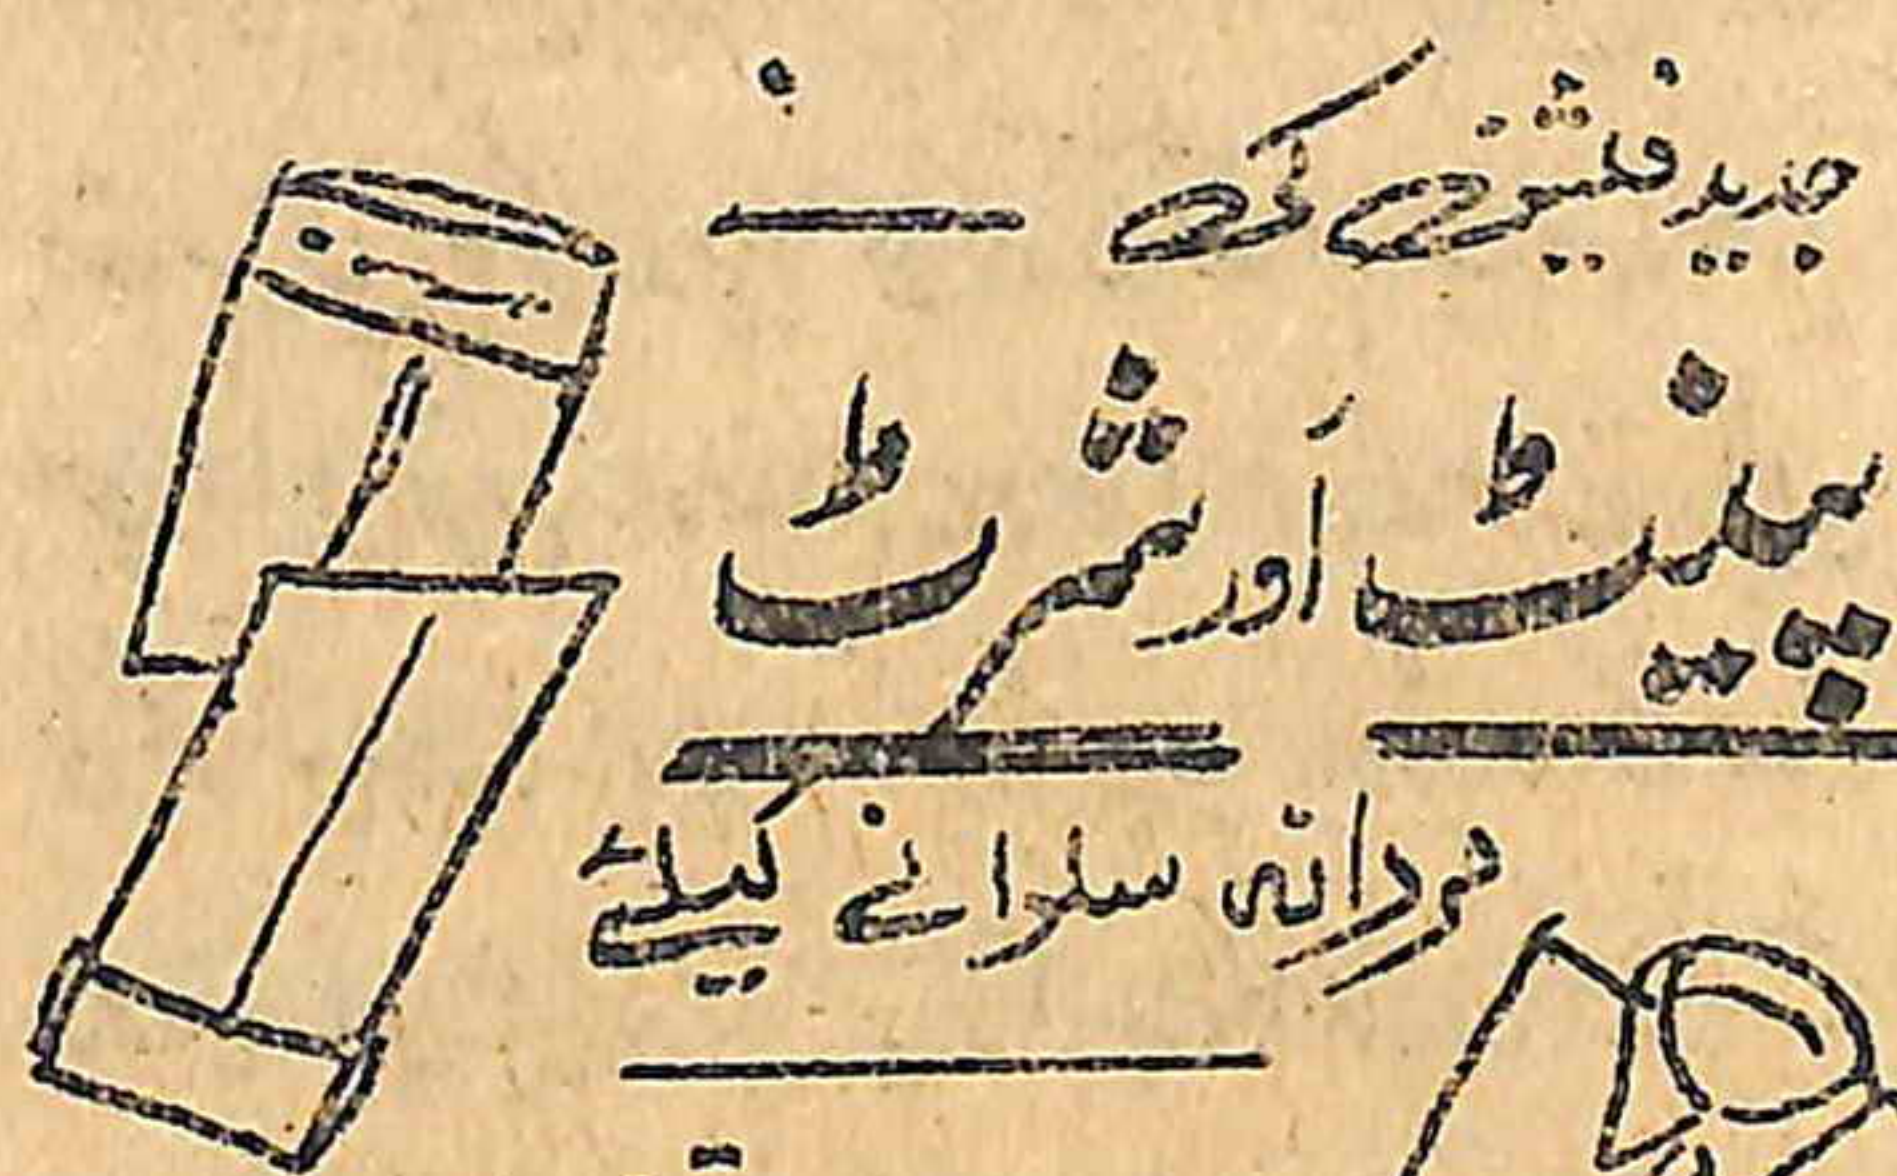 جدید فیشن کی
پینٹ اَور شرٹ
مردانہ سلوانے کیلئے